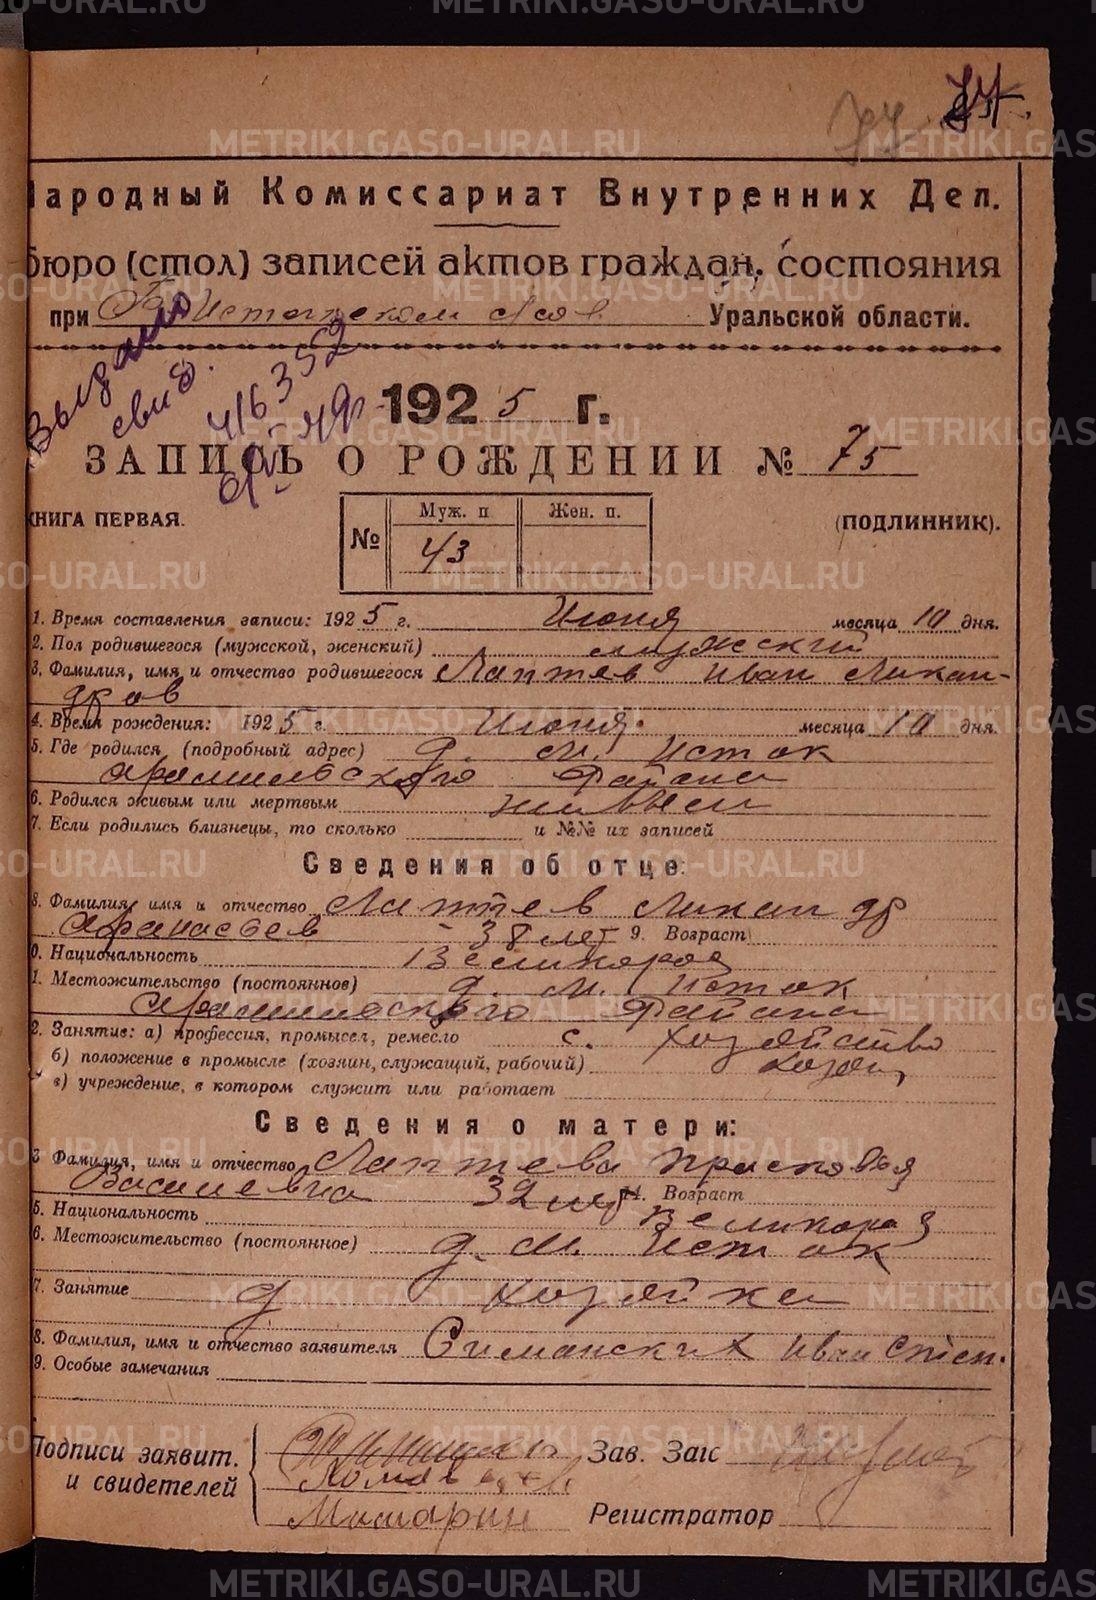 77
Народный Комиссариат Внутренних Дел.
бюро (стол) записей актов граждан. состояния
при Б Истокском Уральской области.
Выдано
свид.
416352
1925 г.
ЗАПИСЬ О РОЖДЕНИИ № 75
КНИГА ПЕРВАЯ. (ПОДЛИННИК).
№ Муж. п Жен. п.
43
1. Время составления записи: 1925 г. Июня месяца 10 дня.
2. Пол родившегося (мужской, женский) мужский
3. Фамилия, имя и отчество родившегося Лаптев Иван Ликан-
дров
4. Время рождения: 1925 г. Июня месяца 10 дня.
5. Где родился, (подробный адрес) д. М. Исток
Арамильского района
6. Родился живым или мертвым живым
7. Если родились близнецы, то сколько и №№ их записей
Сведения об отце:
8. Фамилия, имя и отчество Лаптев Ликандр
Афанасьев 38 лет 9. Возраст
0. Национальность Великоросс
1. Местожительство (постоянное) д. М. Исток
Арамильского района
2. Занятие: а) профессия, промысел, ремесло с. хозяйство
б) положение в промысле (хозяин, служащий, рабочий) хозяин
в) учреждение, в котором служит или работает
Сведения о матери:
3 Фамилия, имя и отчество Лаптева Прасковья
Васильевна 32 лет 4. Возраст
5. Национальность Великоросс
6. Местожительство (постоянное) д. М. Исток
7. Занятие д. хозяйка
8. Фамилия, имя и отчество заявителя Симанских Иван Степ.
9. Особые замечания
Подписи заявит. Зав. Загс
и свидетелей
Мишарин Регистратор
METRIKI.GASO-URAL.RU